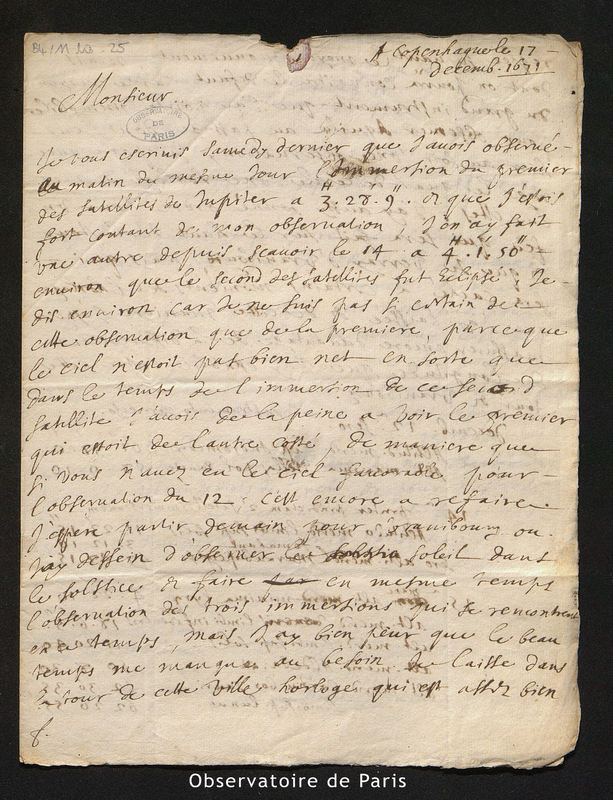 B4/1M no - 25
A Copenhague le 17
decemb. 1671
Monsieur
OBSERVATOIRE
DE
PARIS
Je vous escrivis samedy dernier que j'avois observé
au matin du mesme jour l'Immersion du premier
des satellites de Jupiter a 3. 9". et que j'estois
fort contant de mon observation; j'en ay fait
une autre depuis scavoir le 14 a 4. 1. 50"
environ que le second des satellites fut Eclipsé; Je
dis environ car je ne suis pas si certain de
cette observation que de la premiere, parceque
le ciel n'estoit pas bien net en sorte que
dans le temps de l'immersion de ce second
satellite j'avois de la peine a voir le premier
qui estoit de l'autre costé, de maniere que
si vous n'avez eu le ciel favorable pour
l'observation du 12 c'est encore a refaire.
J'espere partir demain pour Uranibourg ou
J'ay dessein d'observer le soleil dans
le solstice et faire en mesme temps
l'observation des trois immersions qui se rencontrent
en ce temps, mais j'ay bien peur que le beau
temps me manque au besoin. Je laisse dans
la tour de cette ville horloge qui est assez bien
Observatoire de Paris